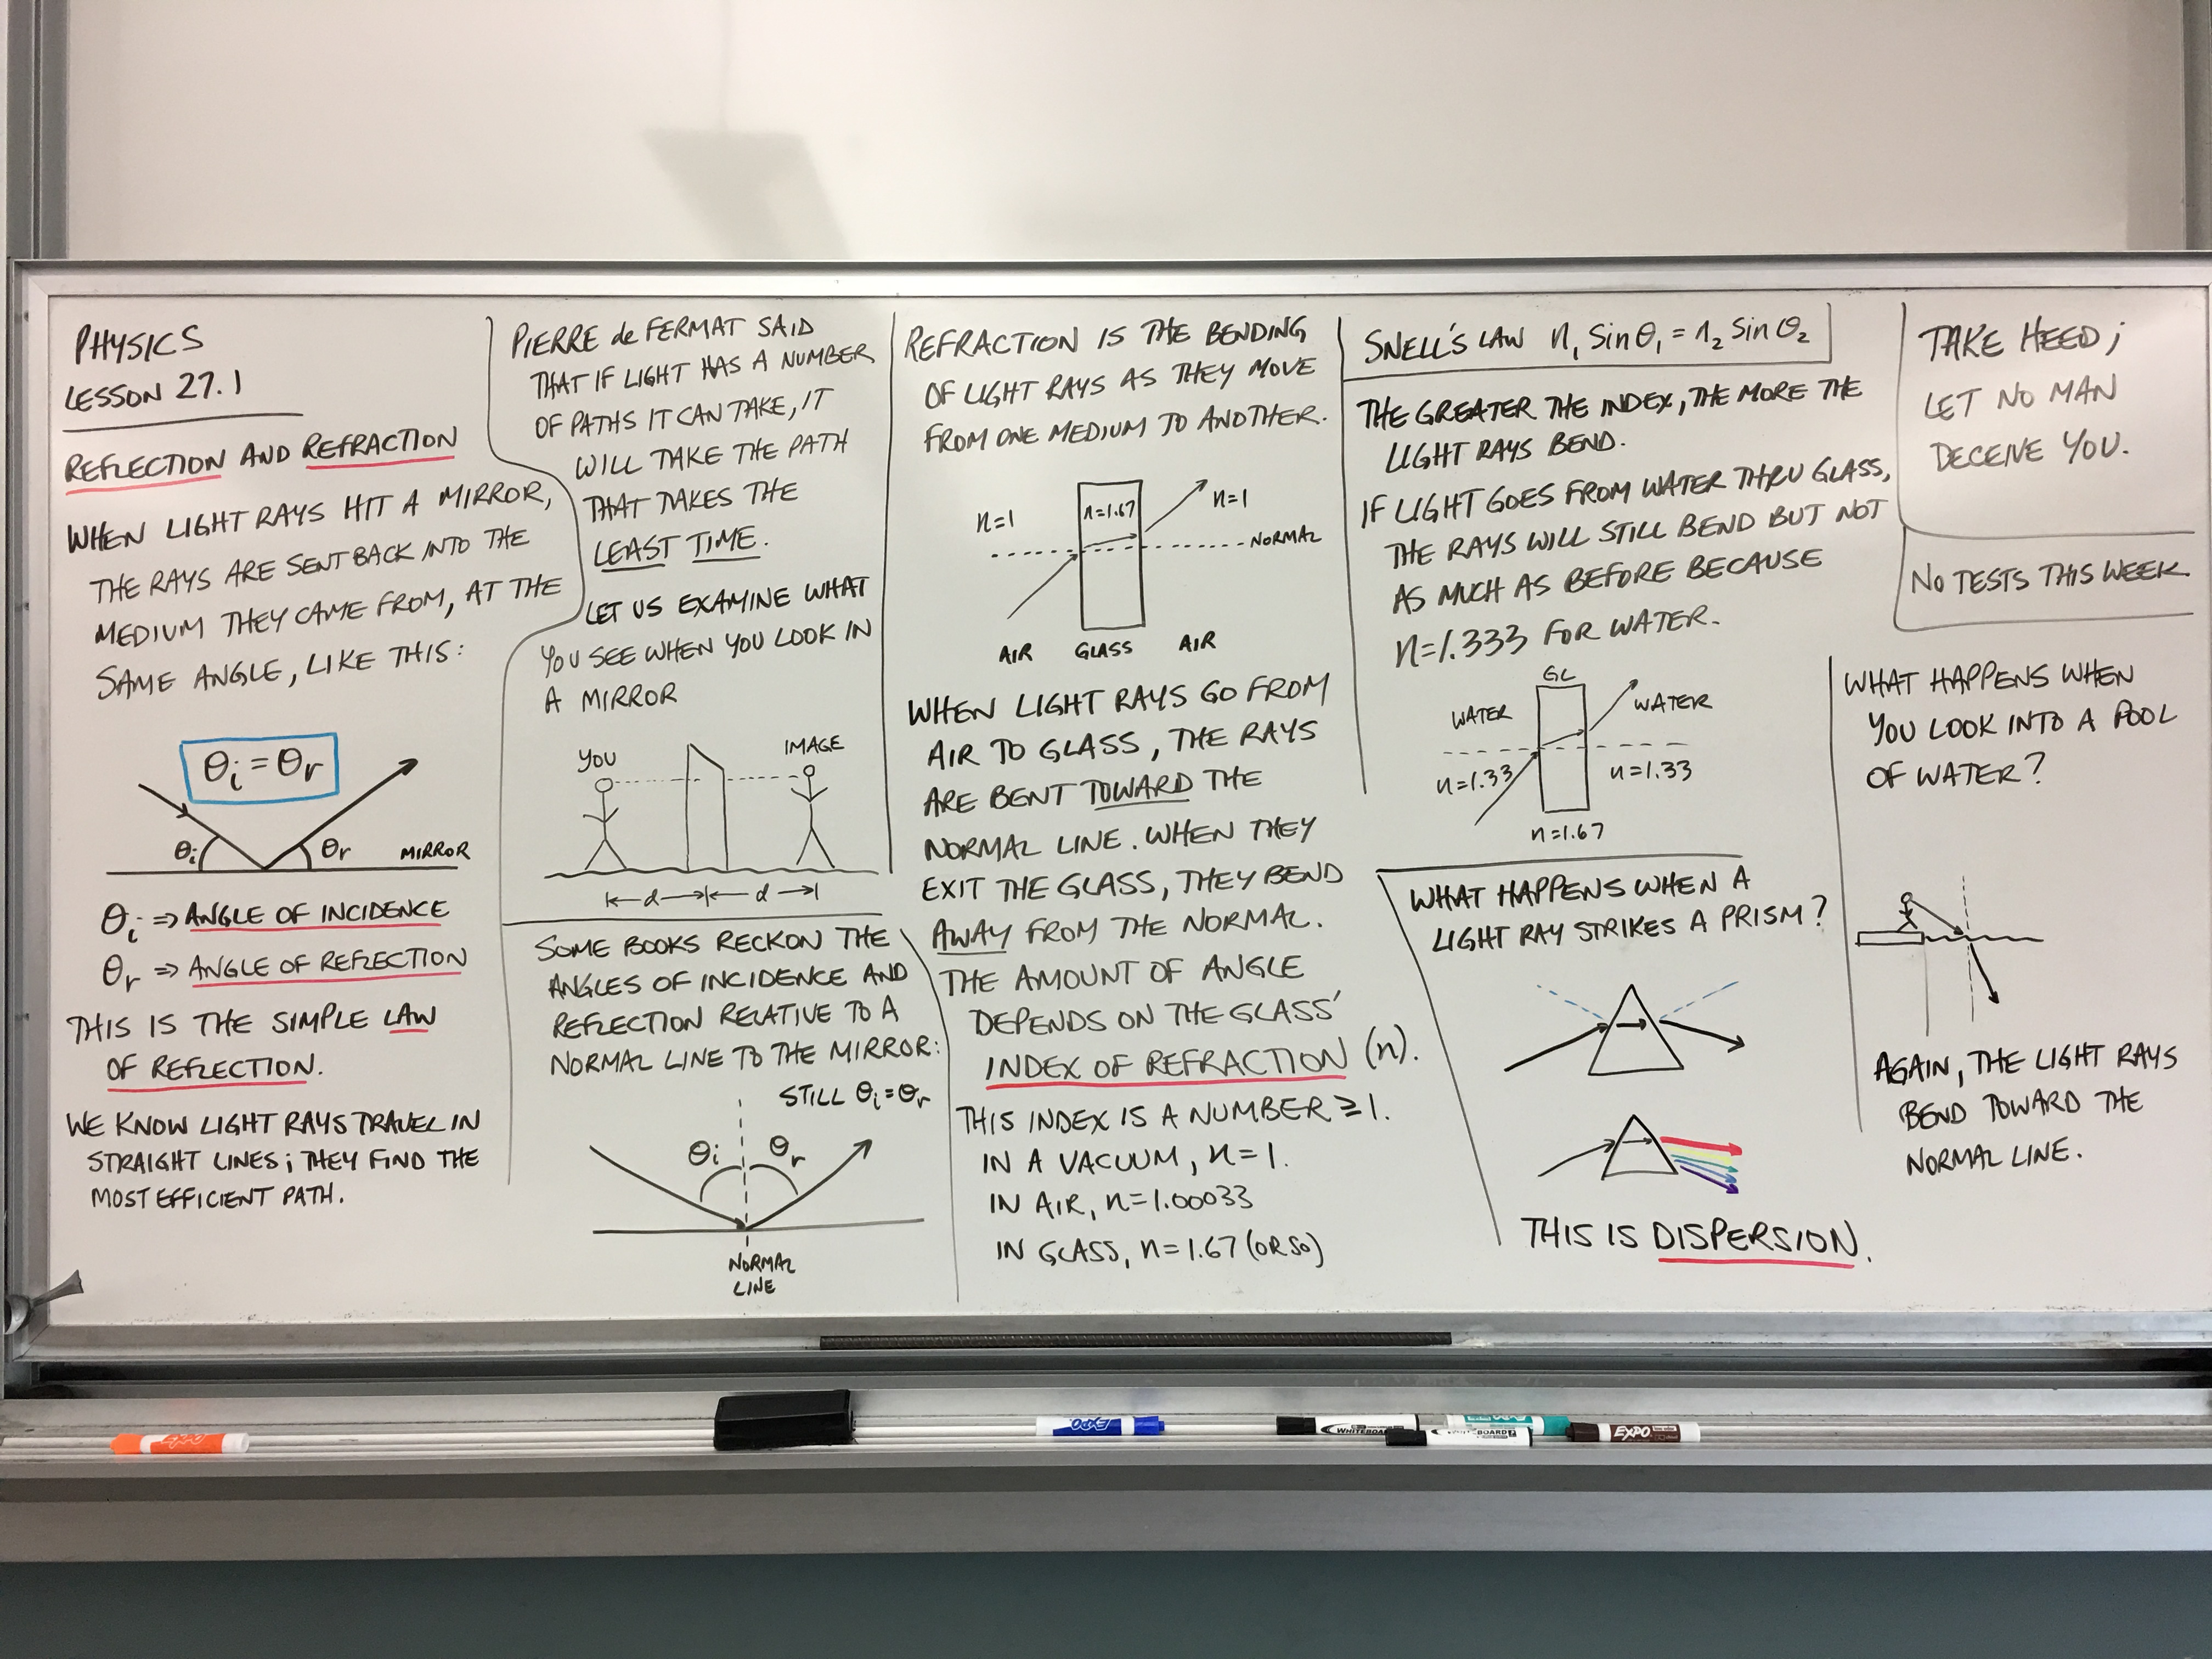 PHYSICS
LESSON 27.1
REFLECTION AND REFRACTION
WHEN LIGHT RAYS HIT A MIRROR,
THE RAYS ARE SENT BACK INTO THE
MEDIUM THEY CAME FROM, AT THE
SAME ANGLE, LIKE THIS:
θi = θr
θi
θr
MIRROR
θi ⇒ ANGLE OF INCIDENCE
θr ⇒ ANGLE OF REFLECTION
THIS IS THE SIMPLE LAW
OF REFLECTION.
WE KNOW LIGHT RAYS TRAVEL IN
STRAIGHT LINES; THEY FIND THE
MOST EFFICIENT PATH.
PIERRE de FERMAT SAID
THAT IF LIGHT HAS A NUMBER
OF PATHS IT CAN TAKE, IT
WILL TAKE THE PATH
THAT TAKES THE
LEAST TIME.
LET US EXAMINE WHAT
YOU SEE WHEN YOU LOOK IN
A MIRROR
YOU
IMAGE
d
d
SOME BOOKS RECKON THE
ANGLES OF INCIDENCE AND
REFLECTION RELATIVE TO A
NORMAL LINE TO THE MIRROR:
STILL θi = θr
θi
θr
NORMAL
LINE
REFRACTION IS THE BENDING
OF LIGHT RAYS AS THEY MOVE
FROM ONE MEDIUM TO ANOTHER.
n=1
n=1.67
n=1
NORMAL
AIR
GLASS
AIR
WHEN LIGHT RAYS GO FROM
AIR TO GLASS, THE RAYS
ARE BENT TOWARD THE
NORMAL LINE. WHEN THEY
EXIT THE GLASS, THEY BEND
AWAY FROM THE NORMAL.
THE AMOUNT OF ANGLE
DEPENDS ON THE GLASS'
INDEX OF REFRACTION (n).
THIS INDEX IS A NUMBER ≥ 1.
IN A VACUUM, n=1.
IN AIR, n=1.00033
IN GLASS, n=1.67 (OR SO)
SNELL'S LAW n₁ Sin θ₁ = n₂ Sin θ₂
THE GREATER THE INDEX, THE MORE THE
LIGHT RAYS BEND.
IF LIGHT GOES FROM WATER THRU GLASS,
THE RAYS WILL STILL BEND BUT NOT
AS MUCH AS BEFORE BECAUSE
n=1.333 FOR WATER.
GL
WATER
WATER
n=1.33
n=1.33
n=1.67
WHAT HAPPENS WHEN A
LIGHT RAY STRIKES A PRISM?
THIS IS DISPERSION.
TAKE HEED;
LET NO MAN
DECEIVE YOU.
NO TESTS THIS WEEK.
WHAT HAPPENS WHEN
YOU LOOK INTO A POOL
OF WATER?
AGAIN, THE LIGHT RAYS
BEND TOWARD THE
NORMAL LINE.
EXPO
EXPO
EXPO